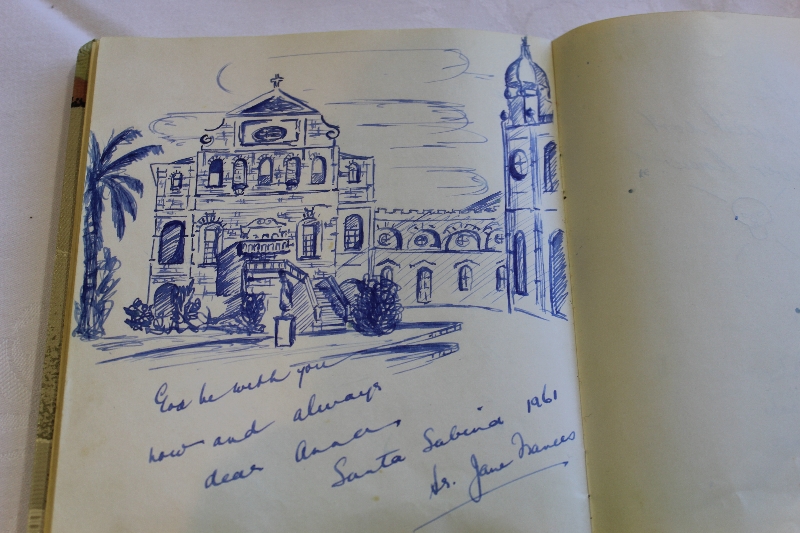 God be with you
now and always
dear Anna,
Santa Sabina 1961
Sr. Jane Frances